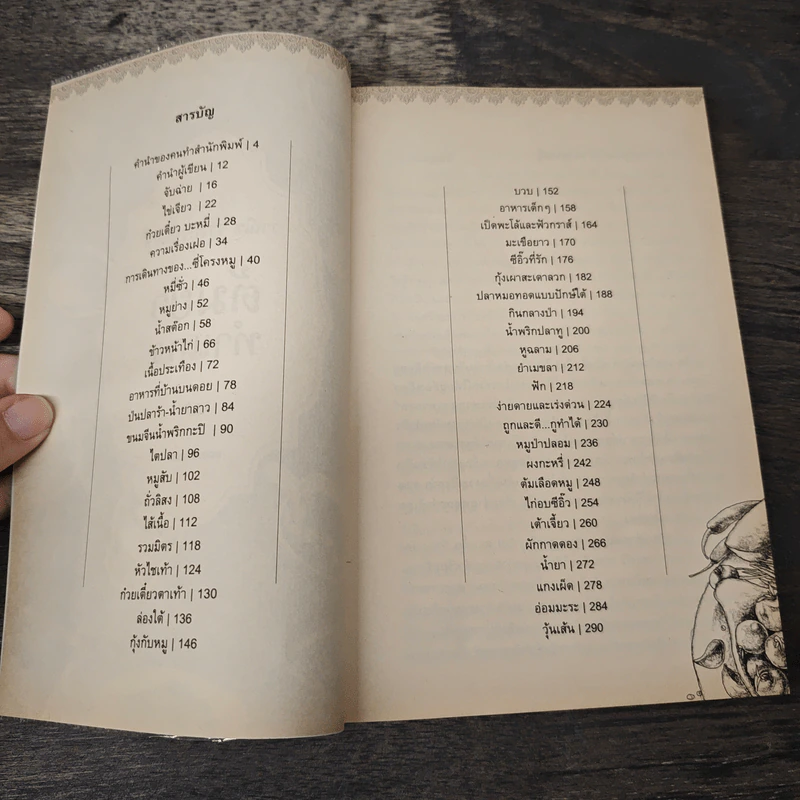 สารบัญ
คำนำของคนทำสำนักพิมพ์ | 4
คำนำผู้เขียน | 12
จับฉ่าย | 16
ไข่เจียว | 22
ก๋วยเตี๋ยว บะหมี่ | 28
ความเรื่องเฝอ | 34
การเดินทางของ...ซี่โครงหมู | 40
หมี่ซั่ว | 46
หมูย่าง | 52
น้ำสต๊อก | 58
ข้าวหน้าไก่ | 66
เนื้อประเทือง | 72
อาหารที่บ้านบนดอย | 78
ป่นปลาร้า-น้ำยาลาว | 84
ขนมจีนน้ำพริกกะปิ | 90
ไตปลา | 96
หมูสับ | 102
ถั่วลิสง | 108
ไส้เนื้อ | 112
รวมมิตร | 118
หัวไชเท้า | 124
ก๋วยเตี๋ยวตาเท้า | 130
ล่องใต้ | 136
กุ้งกับหมู | 146
บวบ | 152
อาหารเด็กๆ | 158
เป็ดพะโล้และฟัวกราส์ | 164
มะเขือยาว | 170
ซีอิ๊วที่รัก | 176
กุ้งเผาสะเดาลวก | 182
ปลาหมอทอดแบบปักษ์ใต้ | 188
กินกลางป่า | 194
น้ำพริกปลาทู | 200
หูฉลาม | 206
ยำเมขลา | 212
ฟัก | 218
ง่ายดายและเร่งด่วน | 224
ถูกและดี...กูทำได้ | 230
หมูป่าปลอม | 236
ผงกะหรี่ | 242
ต้มเลือดหมู | 248
ไก่อบซีอิ๊ว | 254
เต้าเจี้ยว | 260
ผักกาดดอง | 266
น้ำยา | 272
แกงเผ็ด | 278
อ่อมมะระ | 284
วุ้นเส้น | 290